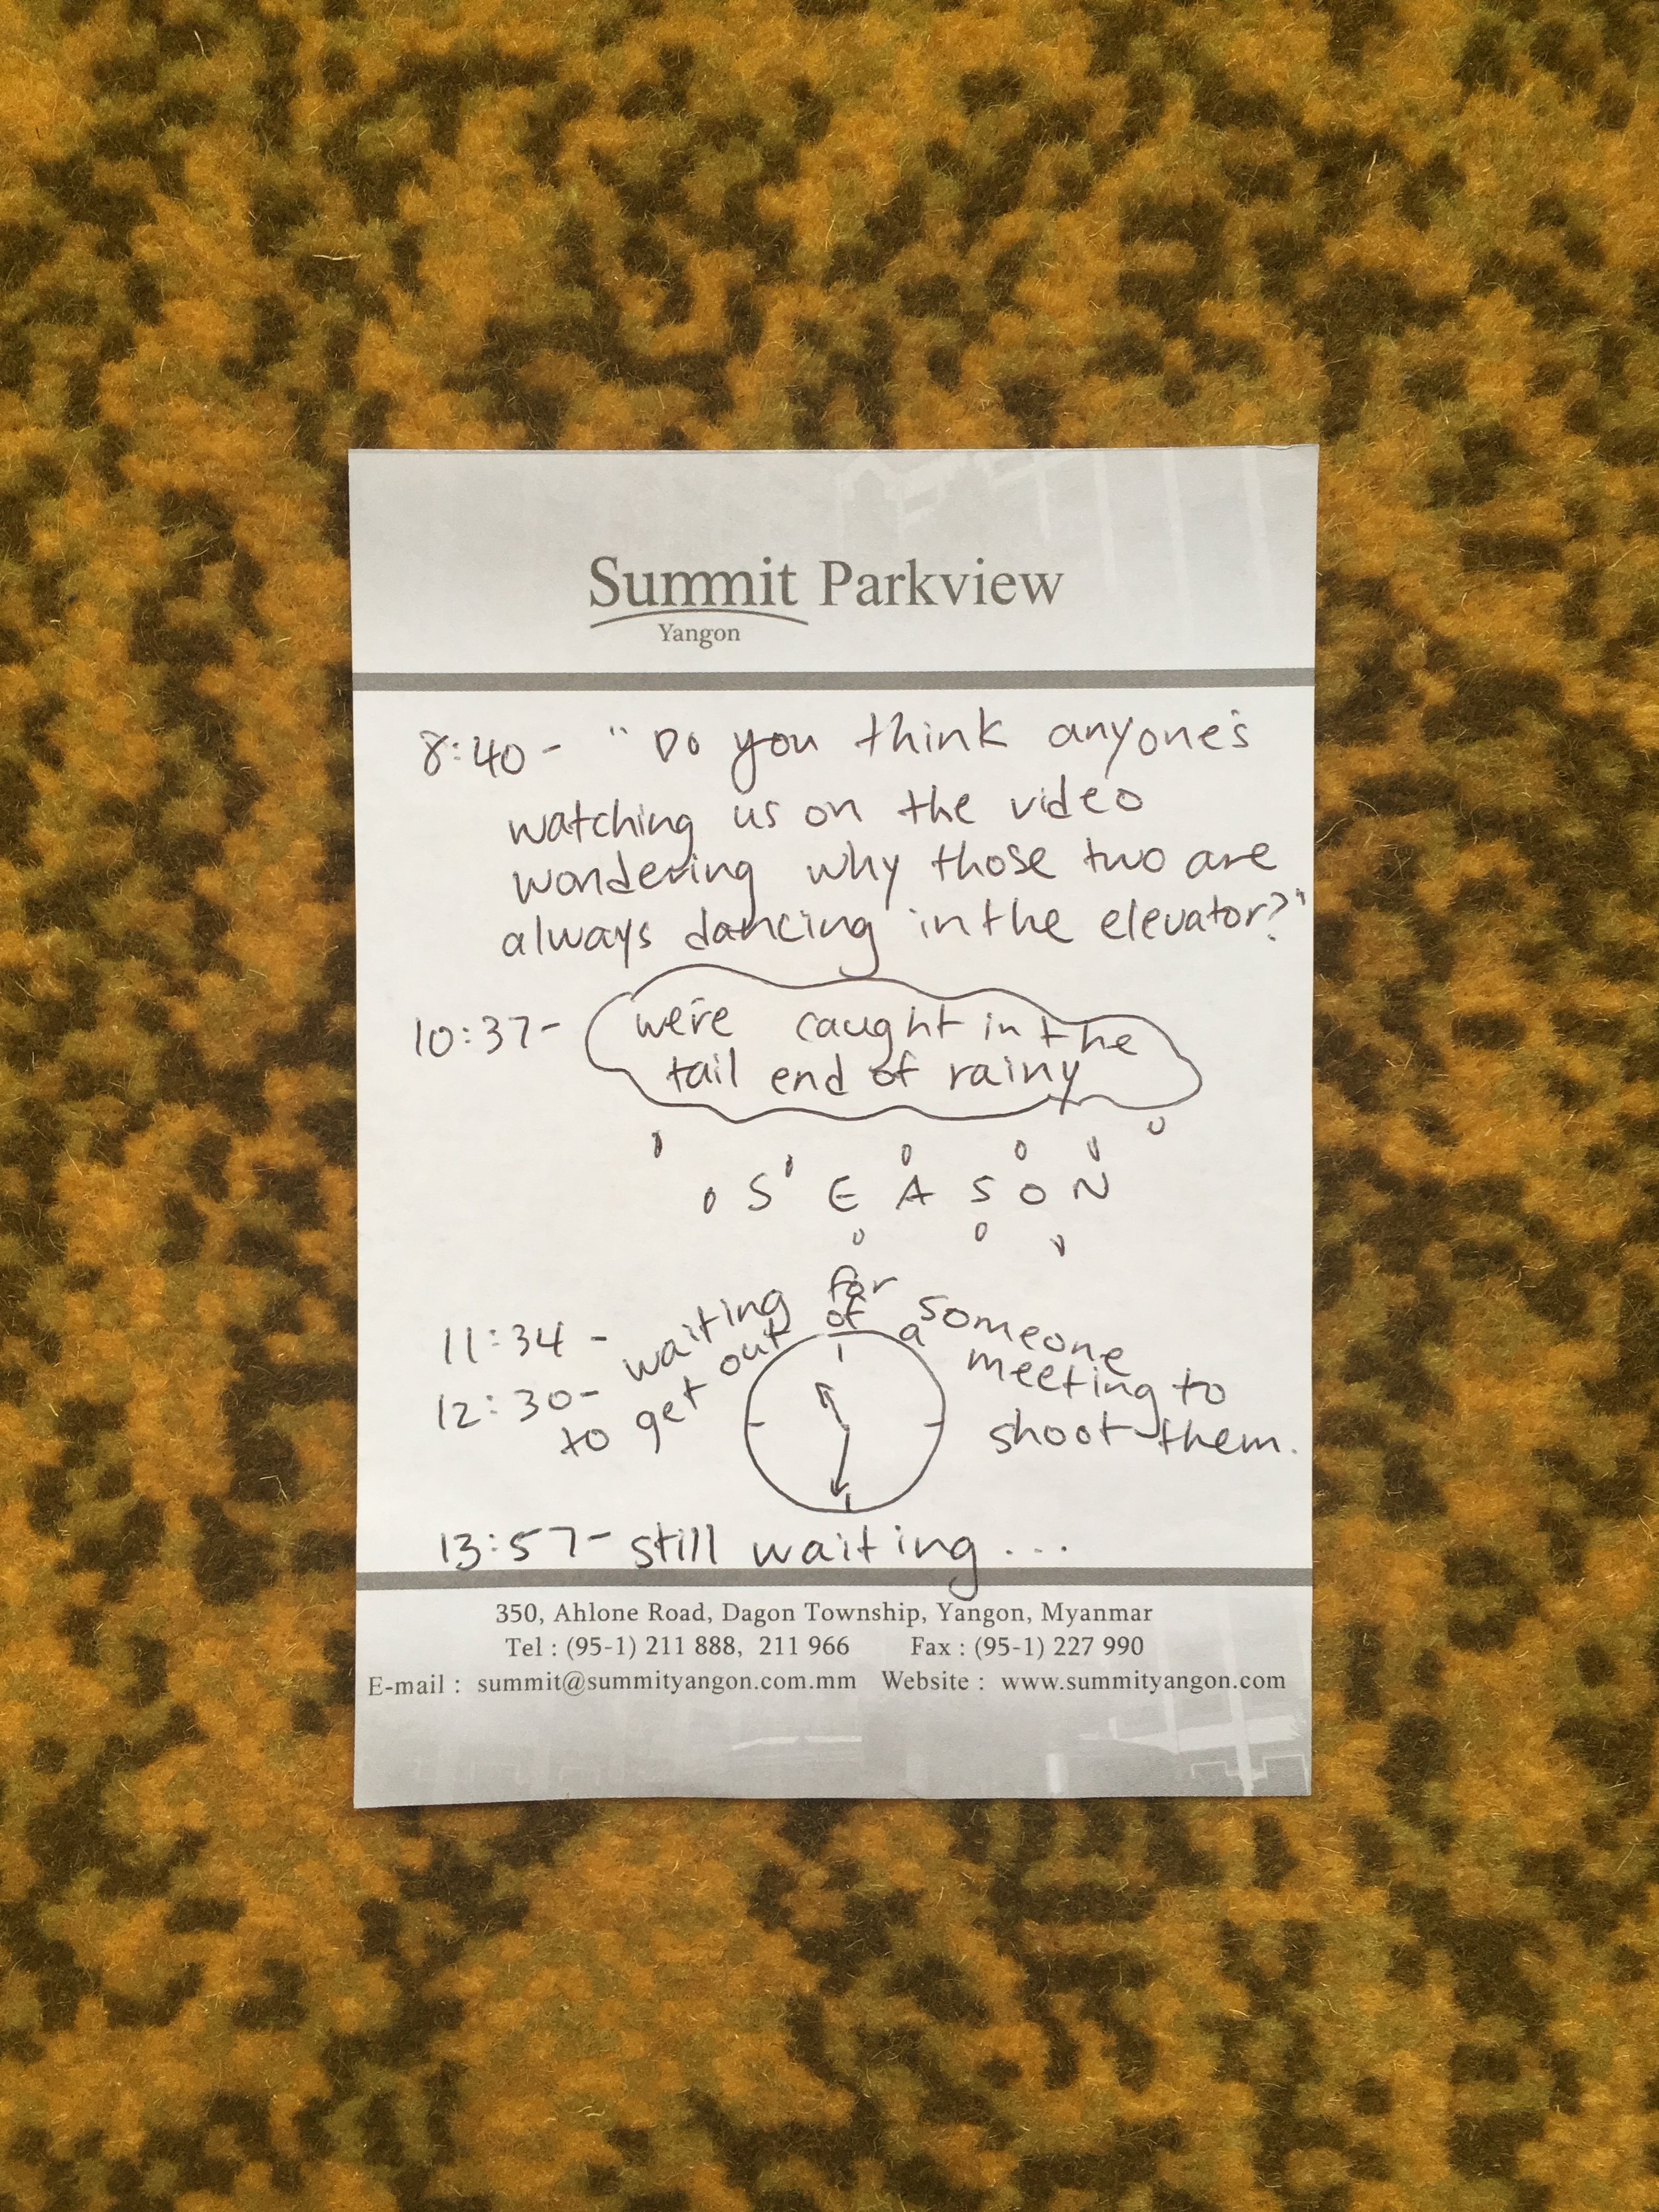 Summit Parkview
Yangon
8:40 - "Do you think anyone's
watching us on the video
wondering why those two are
always dancing in the elevator?"
10:37 - we're caught in the
tail end of rainy
SEASON
11:34 - waiting for someone
12:30 - to get out of a meeting to
shoot them.
13:57 - still waiting...
350, Ahlone Road, Dagon Township, Yangon, Myanmar
Tel : (95-1) 211 888, 211 966 Fax : (95-1) 227 990
E-mail : summit@summityangon.com.mm Website : www.summityangon.com